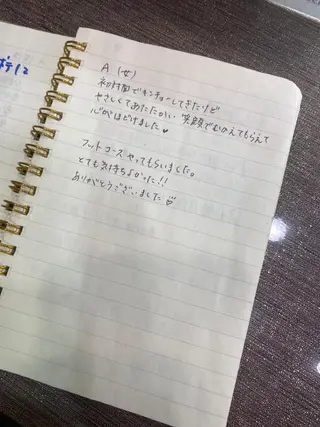 ボディ2
A (女)
初対面でキンチョーしてきたけど
やさしくてあたたかい 笑顔でむかえてもらえて
心がほどけました♥
フットコースやってもらいました。
とても気持ちよかった!!
ありがとうございました♡